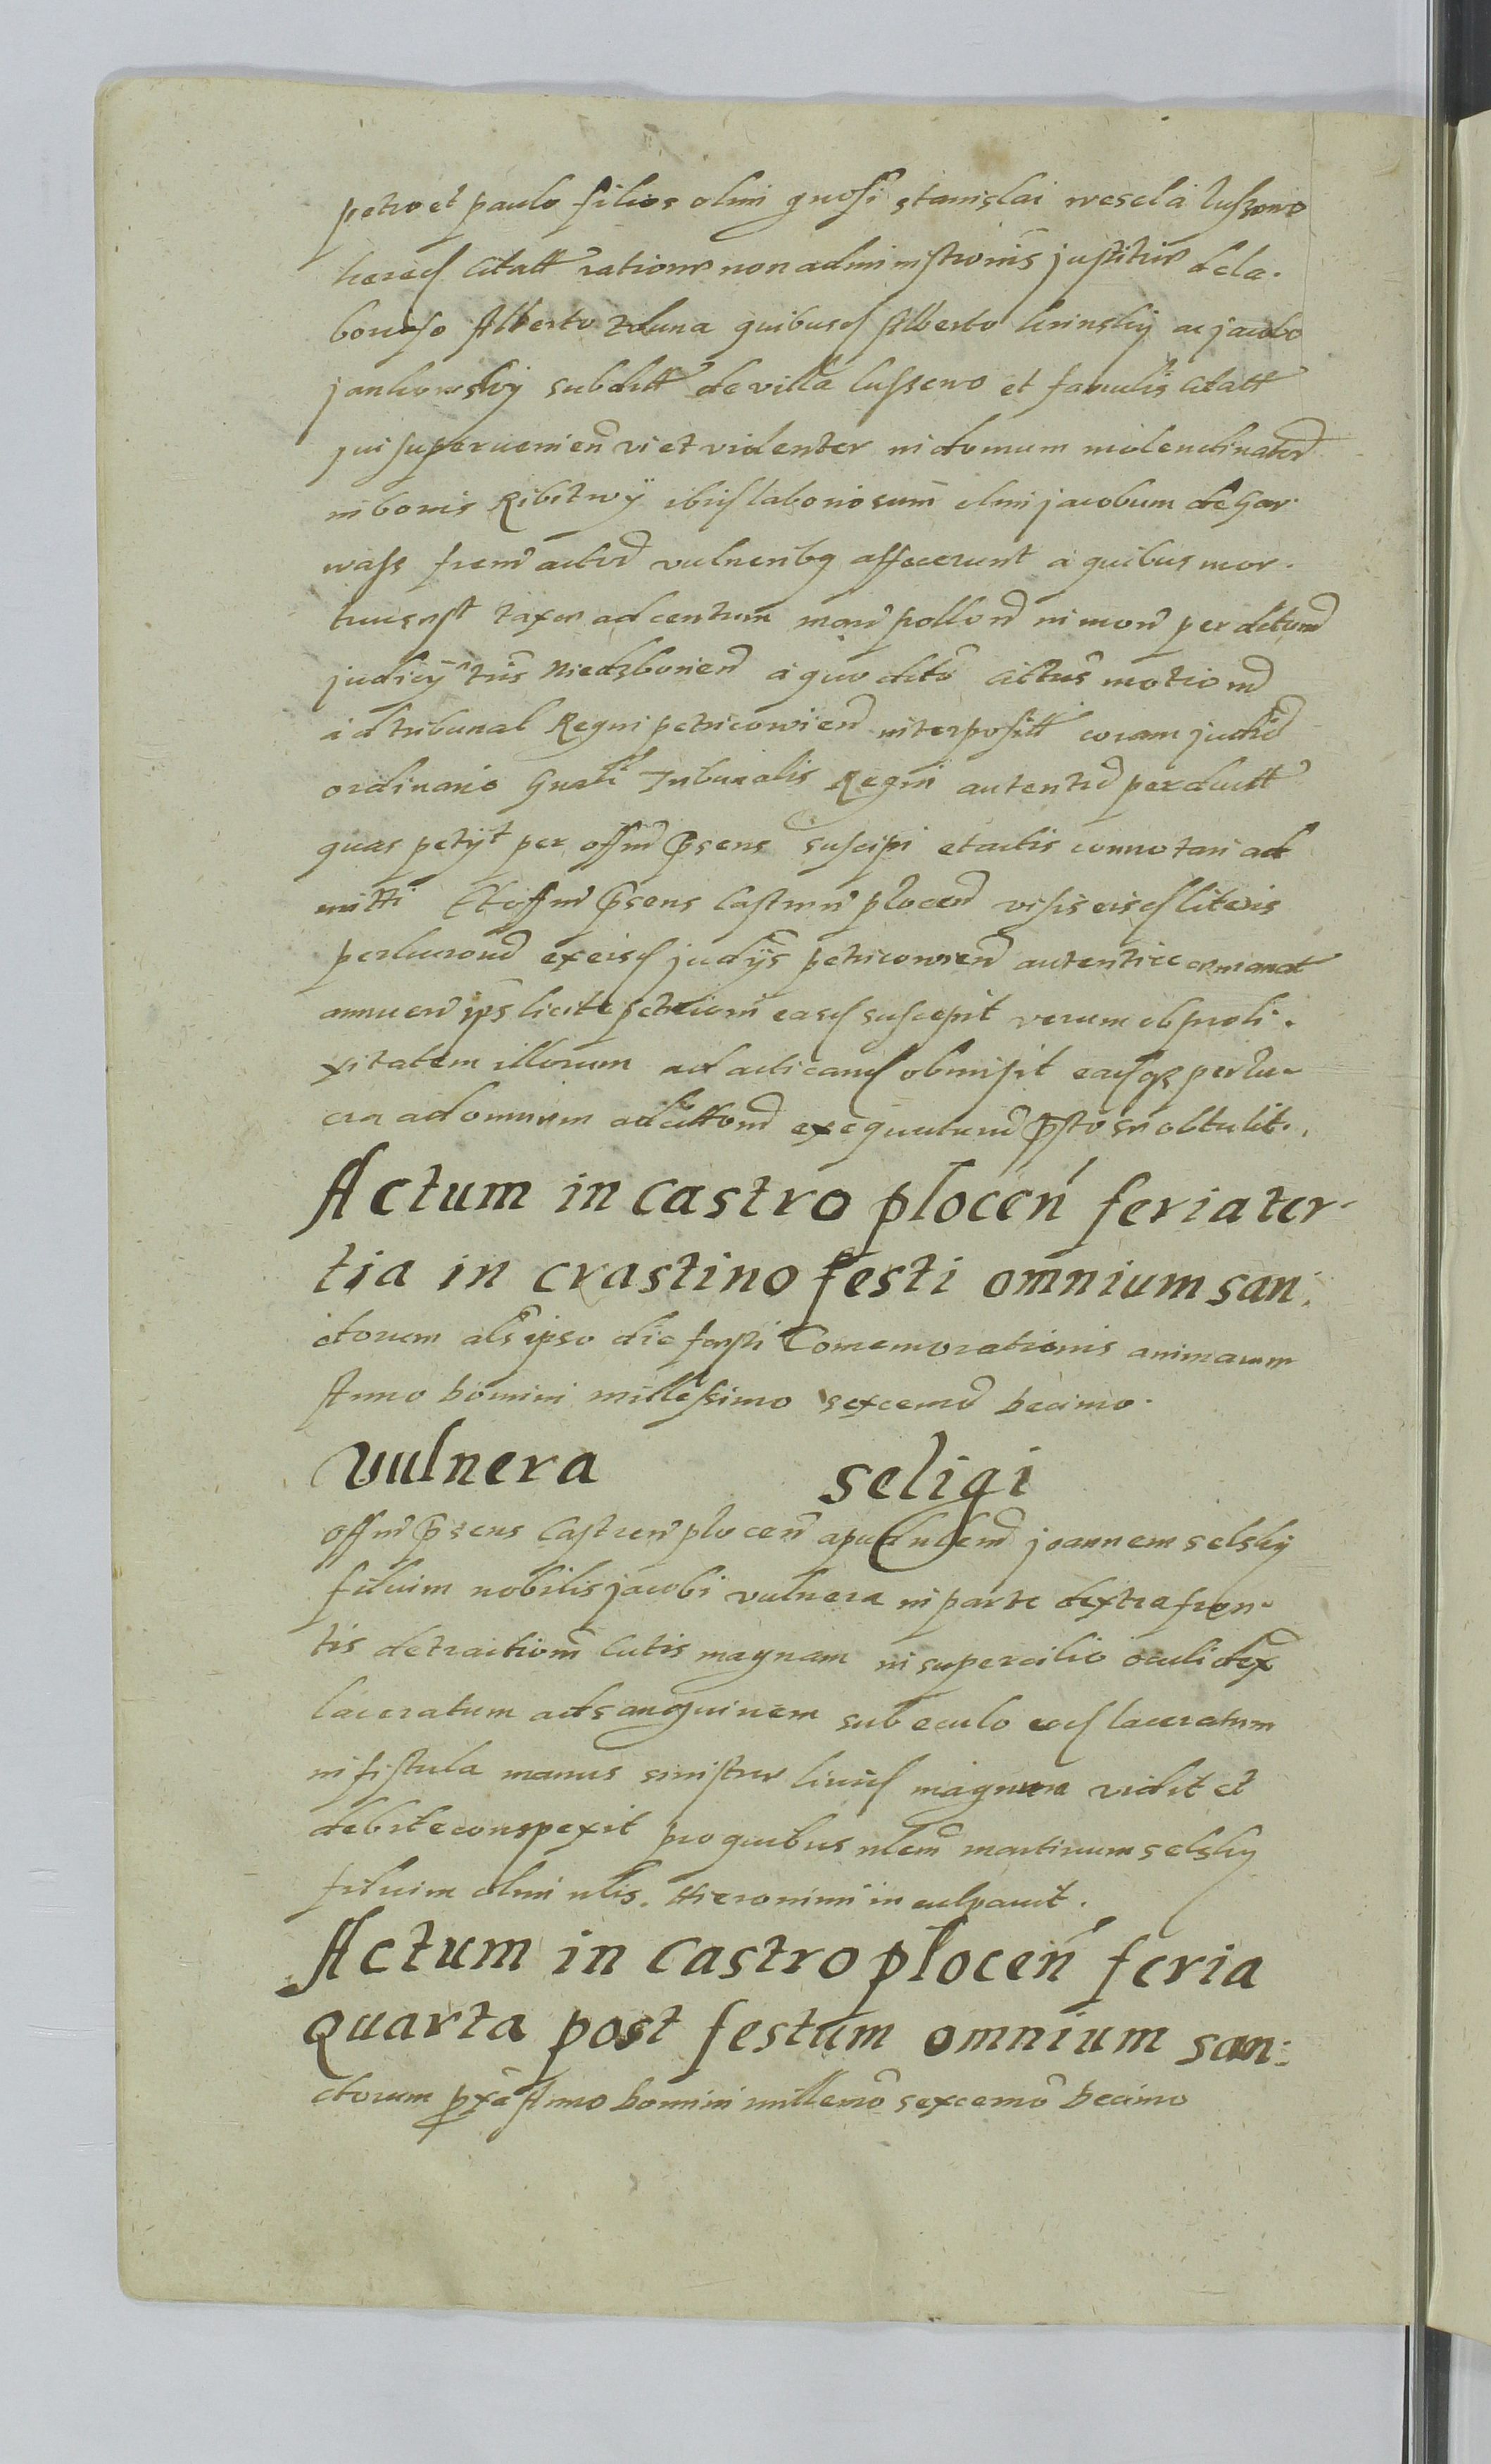 petro et paulo filios olim gnosi stanislai wesela lussewo
hered citatt ratione non administronis justitiæ de la-
borioso Alberto zduna quibusd Alberto krinskij ac jacobo
jankowskij subditt de villa lussewo et famulis citatt
qui supervenien vi et violenter in domum molendinator
in bonis Ribitwÿ ibid laboriosum olim jacobum de Gar-
wass vulneribq affecerunt a quibus mor-
tuus est taxa ad centum marc pollon in mon per ditum
judicÿ tris Niedzborien a quo dcto citus motiond
ad tribunal Regni petricowien interpositt coram judid
ordinario Gnali Tribunalis Regni autentice perductt
quas petijt per offm psens suscipi et actis connotari ad
mitti Et offm psens Castren plocen visis eisd literis
perlucrond ex eisd judijs petricowien autentice emanat
annuen ips licite petitioni easd suscepit verum ob proli-
xitatem illorum ad acticand obmisit easdqz perlu-
cra ad omnium ad cittond exequutiond psto sn obtulit.
Actum in castro plocen feria ter-
tia in crastino festi omnium san:
ctorum als ipso die festi Comemorationis animarum
Anno Domini millesimo sexcemo Decimo.
Vulnera seligi
Offm psens Castren plocen apud nlem joannem selskij
filium nobilis jacobi vulnera in parte dextra fron-
tis detractiom Cutis magnam in supercilio oculi dex
laceratum ad sanguinem sub oculo eod laceratum
in fistula manus sinistræ livid magnum vidit et
debite conspexit pro quibus nlem martinum selskij
filium olim nlis. Hieronimi inculpavit.
Actum in castro plocen feria
quarta post festum omnium san:
ctorum pxe Anno Domini millemo sexcemo Decimo